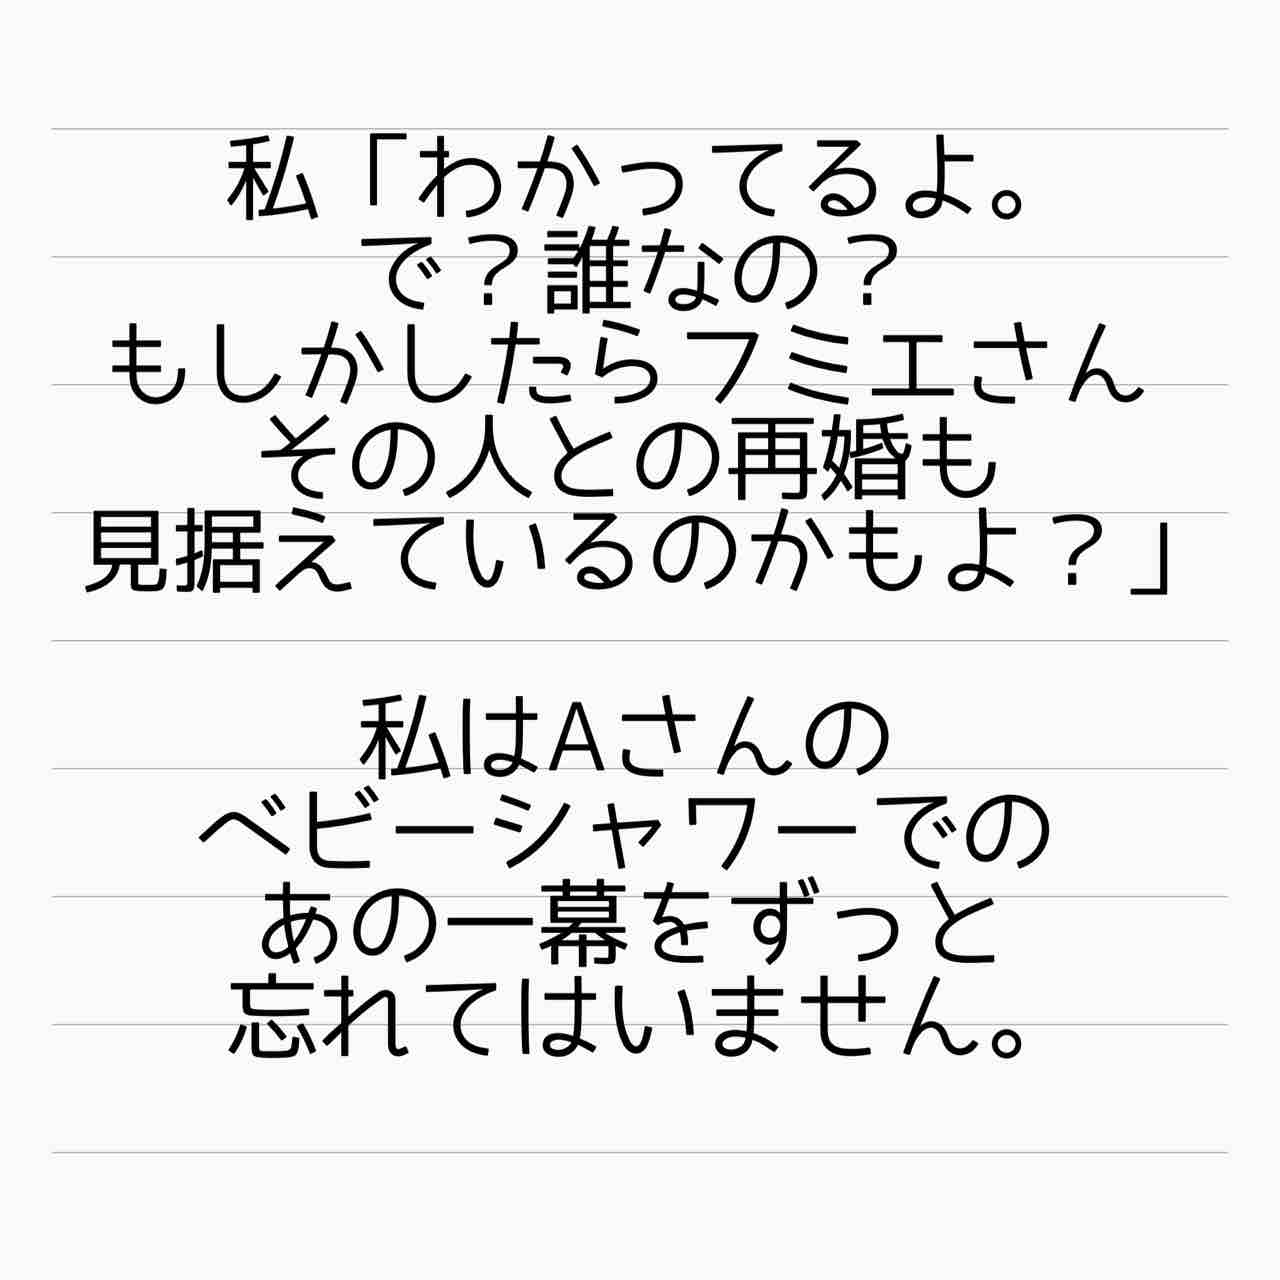 私「わかってるよ。
で？誰なの？
もしかしたらフミエさん
その人との再婚も
見据えているのかもよ？」
私はAさんの
ベビーシャワーでの
あの一幕をずっと
忘れてはいません。